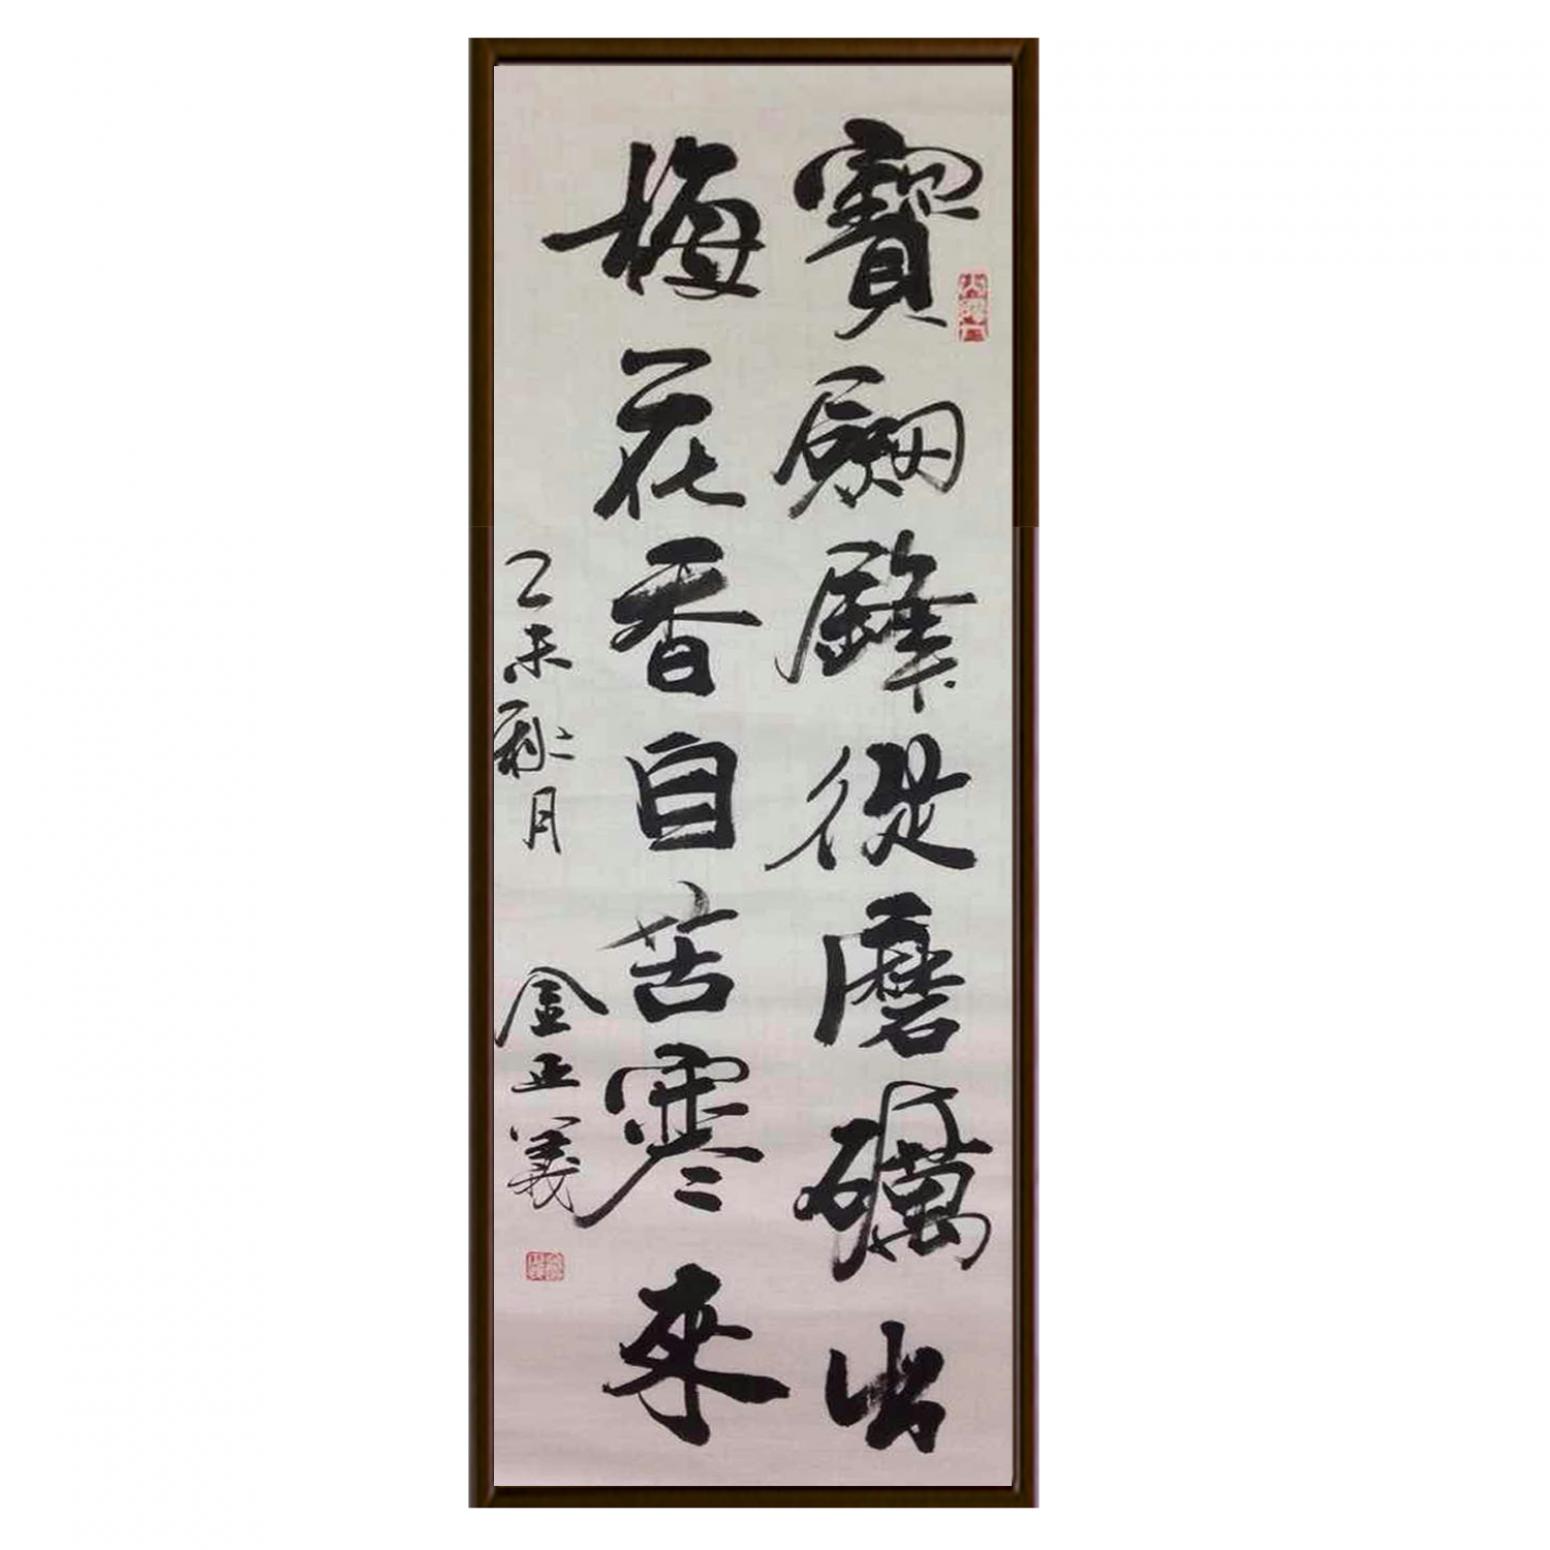 寶劔鋒從磨礪出
梅花香自苦寒來
乙未秋月
金正義